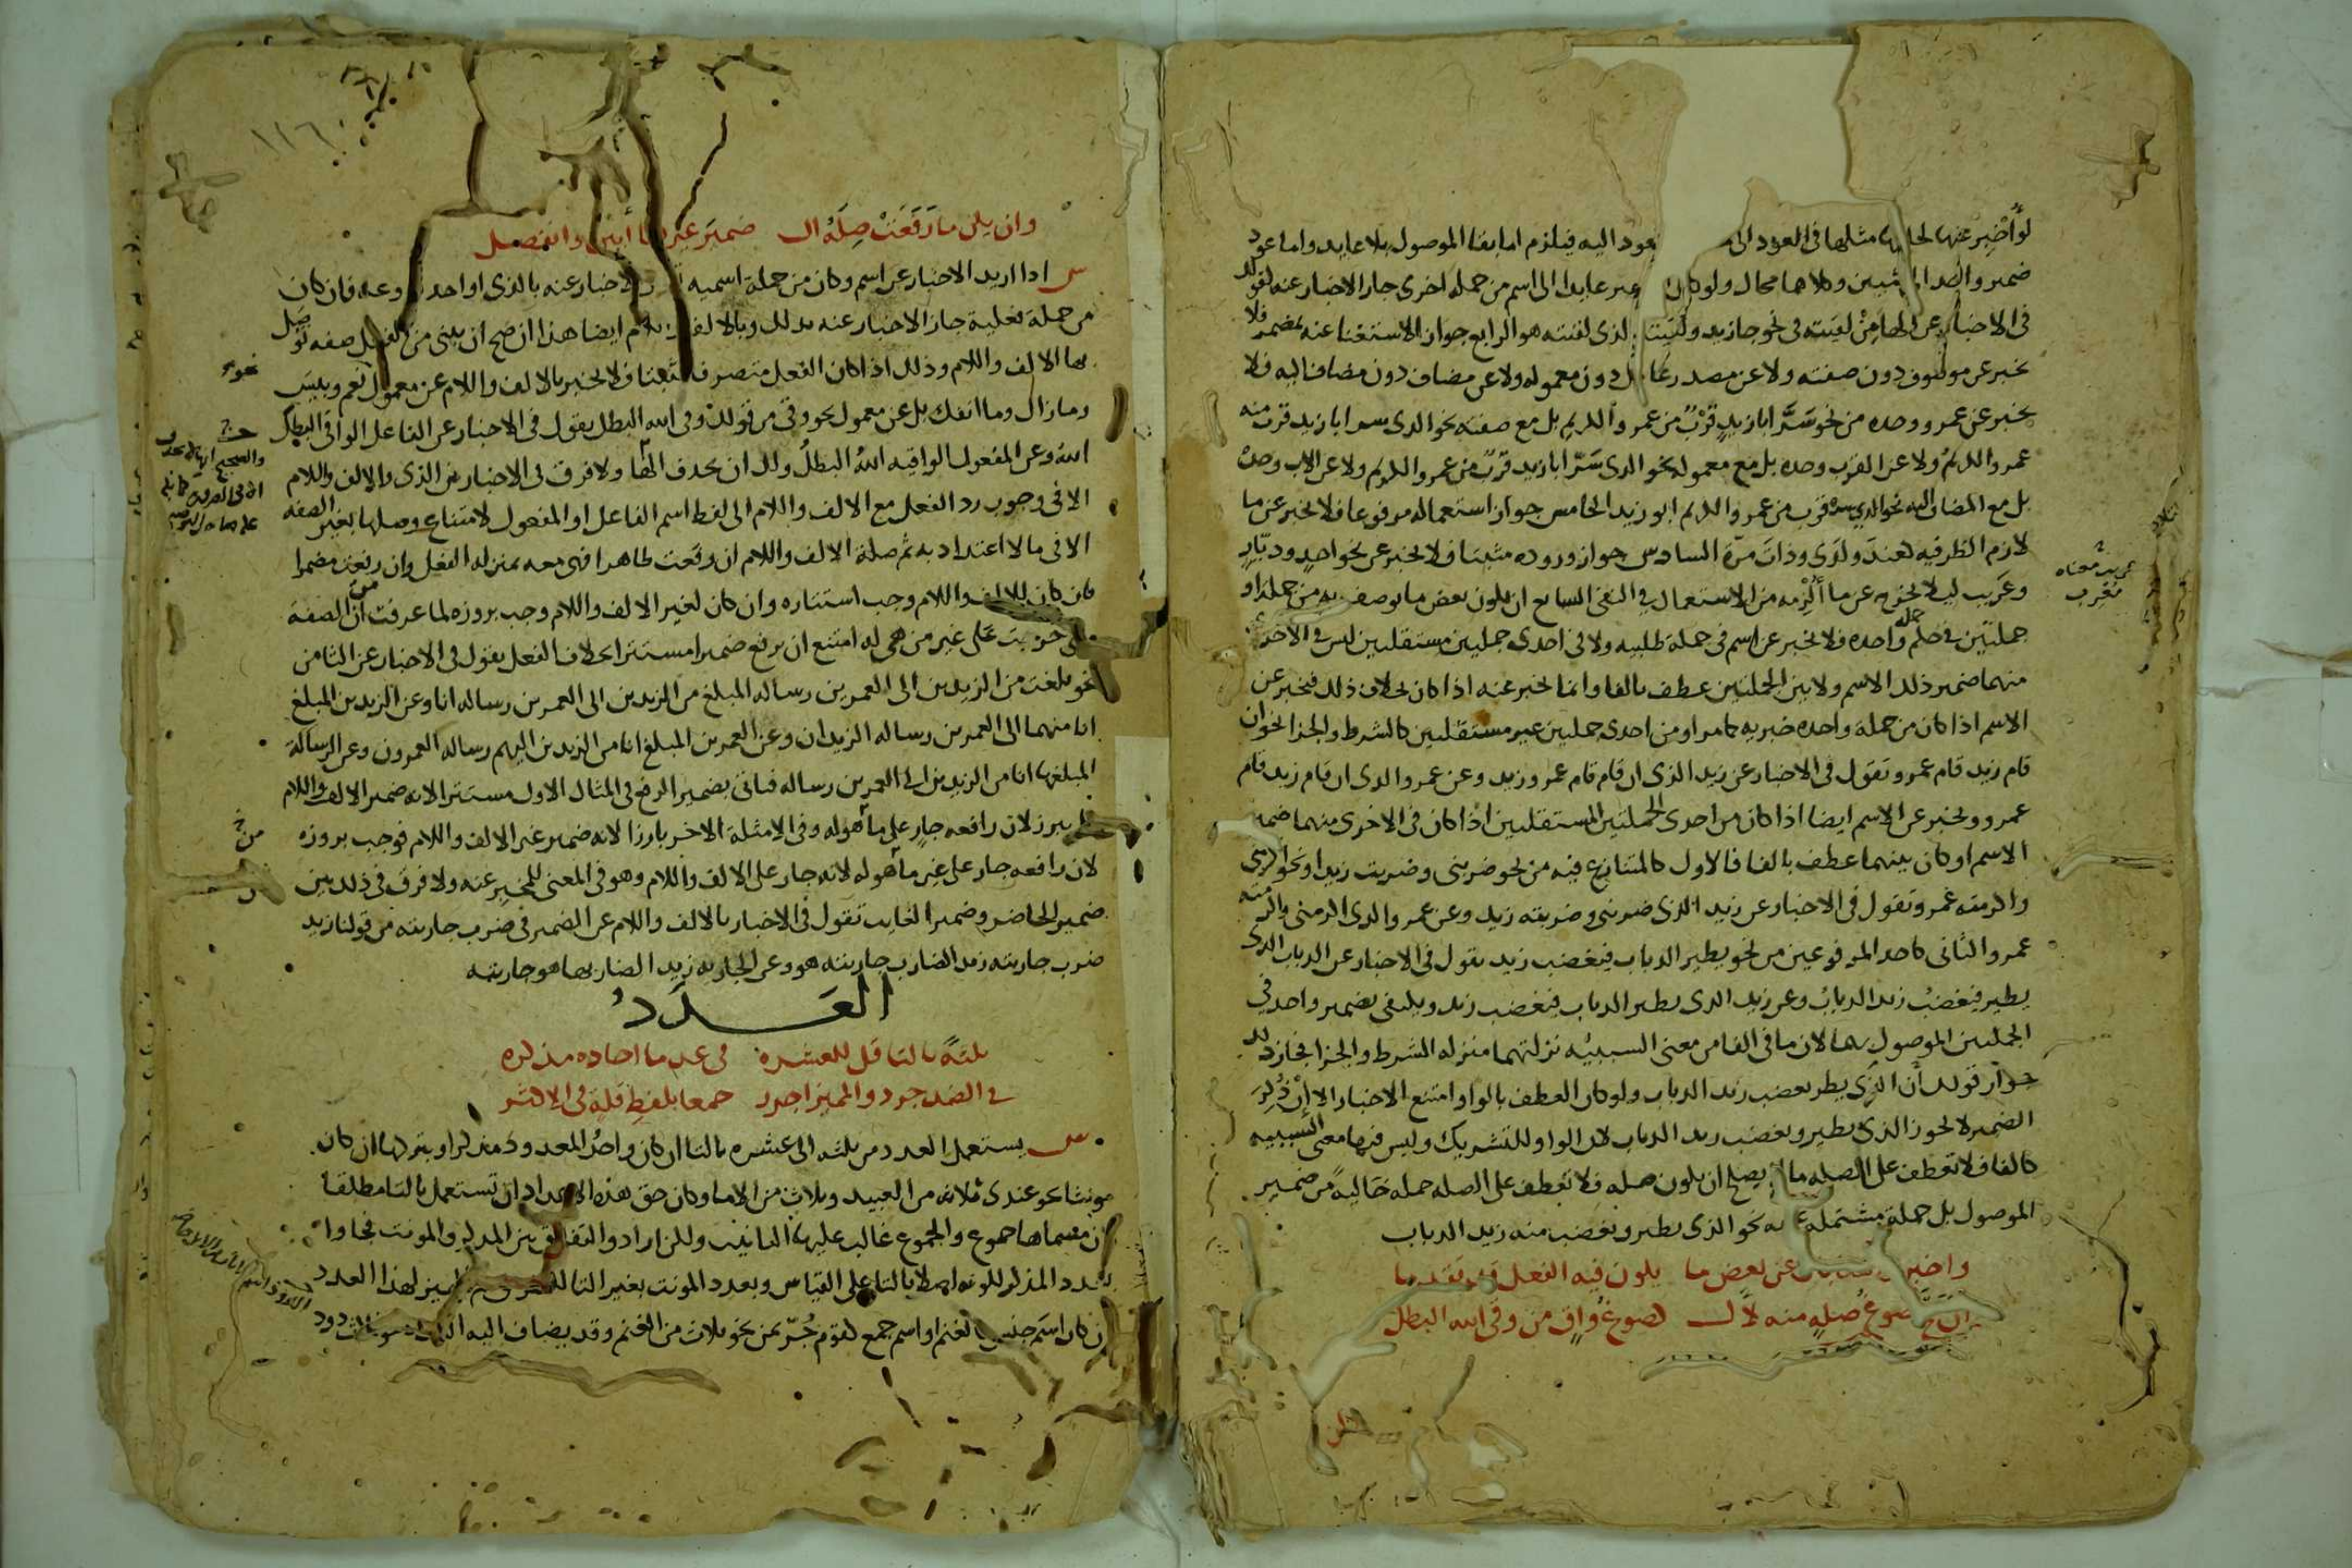 لو أخبر عنها لحلها مثلها في العود الى يعود اليه فيلزم اما بقا الموصول بلا عايد واما عود
ضمير واحد الى شيين وكلاهما محال ولو كان الضمير عايدا الى اسم من جمله اخرى جاز الاخبار عنه لقولك
في الاخبار عن الها من لقيته في نحو جا زيد ولقيته الذى لقيته هو الرابع جواز الاستغنا عنه بمضمر فلا
يخبر عن موصوف دون صفته ولا عن مصدر عامل دون معموله ولا عن مضاف دون مضاف اليه فلا
يخبر عن عمرو وحده من نحو سر ابا زيد قرب من عمرو الكريم بل مع صفته نحو الذى سر ابا زيد قرب منه
عمرو الكريم ولا عن القرب وحده بل مع معموله نحو الذى سر ابا زيد قرب من عمرو الكريم ولا عن الاب وحده
بل مع المضاف اليه نحو الذي سره قرب من عمرو الكريم ابو زيد الخامس جواز استعماله مرفوعا فلا يخبر عن ما
لازم الظرفيه كعند ولدى وذات مرة السادس جواز وروده مثبتا فلا يخبر عن نحو احد وديار
وعريب ليلا يخرج عن ما ألزمه من الاستعمال في النفي السابع ان يكون بعض ما يوصف به من جملة او
جملتين في حكم جمله واحده فلا يخبر عن اسم في جملة طلبيه ولا في احدى جملتين مستقلتين ليس في الاخرى
منهما ضمير ذلك الاسم ولا بين الجملتين عطف بالفا وانما يخبر عنه اذا كان بخلاف ذلك فيخبر عن
الاسم اذا كان من جملة واحده خبريه كما مر او من احدى جملتين غير مستقلتين كالشرط والجزا نحو ان
قام زيد قام عمرو وتقول في الاخبار عن زيد الذى ان قام قام عمرو زيد وعن عمرو الذى ان قام زيد قام
عمرو ويخبر عن الاسم ايضا اذا كان من احدى الجملتين المستقلتين اذا كان في الاخرى منهما ضمير
الاسم او كان بينهما عطف بالفا فالاول كالمتنازع فيه من نحو ضربنى وضربت زيدا ونحو اكرمني
واكرمته عمرو وتقول في الاخبار عن زيد الذى ضربنى وضربته زيد وعن عمرو الذى اكرمنى واكرمته
عمرو الثانى كاحد المرفوعين من نحو يطير الذباب فيغضب زيد تقول في الاخبار عن الذباب الذى
يطير فيغضب زيد الذباب وعن زيد الذى يطير الذباب فيغضب زيد ويكتفى بضمير واحد في
الجملتين الموصول بهما لان ما في الفا من معنى السببيه نزلتهما منزله الشرط والجزا فجاز ذلك
جواز قولك ان الذي يطر يغضب زيد الذباب ولو كان العطف بالواو امتنع الاخبار الا إن ذكر
الضمير لا يجوز الذى يطير ويغضب زيد الذباب لان الواو للتشريك وليس فيها معنى السببيه
كالفا فلا تعطف على الصله ما لا يصلح ان يكون صله فلا تعطف على الصله جمله خاليه من ضمير
الموصول بل جملة مشتملة عليه نحو الذى يطير ويغضب منه زيد الذباب
واخبروا عن بعض ما يكون فيه الفعل قد تقدما
ان صح صوغ صلة منه لال كصوغ واق من وقى الله البطل
عريب معناه
معرب
وان يكن ما رفعت صلة ال ضمير غيرها أبين وانفصل
ش اذا اريد الاخبار عن اسم وكان من جملة اسميه الاخبار عنه بالذى او احد فروعه فان كان
من جملة فعلية جاز الاخبار عنه بذلك وبالالف واللام ايضا هذا ان صح ان يبنى من الفعل صفه توصل
بها الالف واللام وذلك اذا كان الفعل متصرفا مثبتا فلا يخبر بالالف واللام عن معمول نعم وبيس
وما زال وما انفك بل عن معمول نحو وقى من قولك وقى الله البطل يقول في الاخبار عن الفاعل الواقي البطل
الله وعن المفعول الواقيه الله البطل ولك ان تحذف الها ولا فرق في الاخبار بين الذى والالف واللام
الا في وجوب رد الفعل مع الالف واللام الى لفظ اسم الفاعل او المفعول لامتناع وصلها بغير الصفه
الا في ما لا اعتداد به ثم صلة الالف واللام ان رفعت ظاهرا فهى معه بمنزلة الفعل وان رفعت مضمرا
فان كان للالف واللام وجب استتاره وان كان لغير الالف واللام وجب بروزه لما عرفت من ان الصفة
متى جرت على غير من هي له امتنع ان يرفع ضميرا مستترا بخلاف الفعل يقول في الاخبار عن التا من
نحو بلغت من الزيدين الى العمرين رساله المبلغ من الزيدين الى العمرين رساله انا وعن الزيدين المبلغ
انا منهما الى العمرين رساله الزيدان وعن العمرين المبلغ انا من الزيدين اليهم رساله العمرون وعن الرسالة
المبلغها انا من الزيدين الى العمرين رساله فتاتى بضمير الرفع في المثال الاول مستترا لانه ضمير الالف واللام
فلم يبرز لان رافعه جار على ما هو له وفي الامثلة الاخر بارزا لانه ضمير غير الالف واللام فوجب بروزه
لان رافعه جار على غير ما هو له لانه جار على الالف واللام وهو في المعنى للمخبر عنه ولا فرق في ذلك بين
ضمير الحاضر وضمير الغايب تقول في الاخبار بالالف واللام عن الضمير في ضرب جاريته من قولنا زيد
ضرب جاريته زيد الضارب جاريته هو وعن الجاريه زيد الضاربها هو جاريته
العدد
ثلثة بالتا قل للعشره في عد ما احاده مذكره
في الضد جرد والمميز اجرر جمعا بلفظ قلة في الاكثر
ش يستعمل العدد من ثلثه الى عشره بالتا ان كان واحد المعدود مذكرا وبتركها ان كان
مونثا نحو عندى ثلاثه من العبيد وثلاث من الاما وكان حق هذه الاعداد ان تستعمل بالتا مطلقا
لان مسماها جموع والجموع غالب عليها التانيث ولكن ارادوا التفريق بين المذكر والمونث فجاوا
بعدد المذكر لكونه اصلا بالتا على القياس وبعدد المونث بغير التا للفرق لهذا العدد
ان كان اسم جنس كالغنم او اسم جمع كقوم جر بمن نحو ثلاث من الغنم وقد يضاف اليه ذود